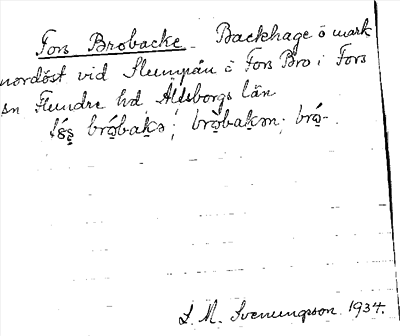 Fors Brobacke. Backhage o mark
nordöst vid Slumpån å Fors Bro i Fors
sn Flundre hd Älvsborgs län
brǫ́bakə; brǫ̀bakən; brǫ́-.
L. M. Svenungsson 1934.